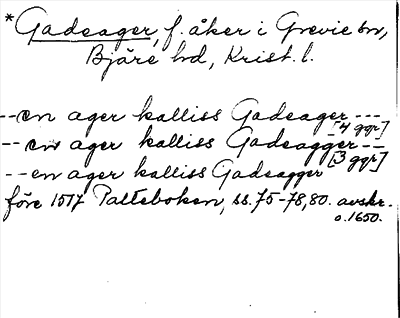 *Gadeager, f. åker i Grevie sn,
Bjäre hd, Krist. l.
--en ager kalliss Gadeager ---
[4 ggr]
--en ager kalliss Gadeagger --
[3 ggr]
--en ager kalliss Gadeagger
före 1517 Palteboken, ss. 75-78, 80. avskr.
o. 1650.